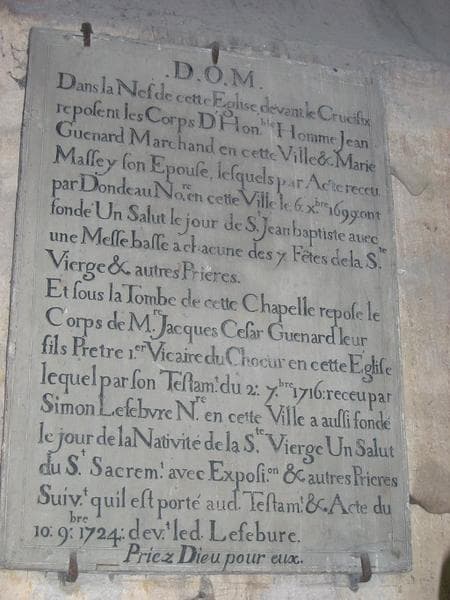 .D.O.M.
Dans la Nef de cette Eglise, devant le Crucifix
reposent les Corps D'Hon.ble Homme Jean
Guenard Marchand en cette Ville & Marie
Massey son Epouse, lesquels par Acte receu
par Dondeau No.re en cette Ville le 6. xbre 1699. ont
fondé Un Salut le jour de S.t Jean baptiste avec
une Messe basse a chacune des 7. Fêtes de la S.te
Vierge & autres Prieres.
Et sous la Tombe de cette Chapelle repose le
Corps de M.re Jacques Cesar Guenard leur
fils Pretre 1.er Vicaire du Choeur en cette Eglise
lequel par son Testam.t du 2: 7.bre 1716: receu par
Simon Lefebvre N.re en cette Ville a aussi fondé
le jour de la Nativité de la S.te Vierge Un Salut
du S.t Sacrem.t avec Exposi.on & autres Prieres
Suiv.t qu'il est porté aud. Testam.t & Acte du
10: 9.bre 1724: dev.t led. Lefebure.
Priez Dieu pour eux.